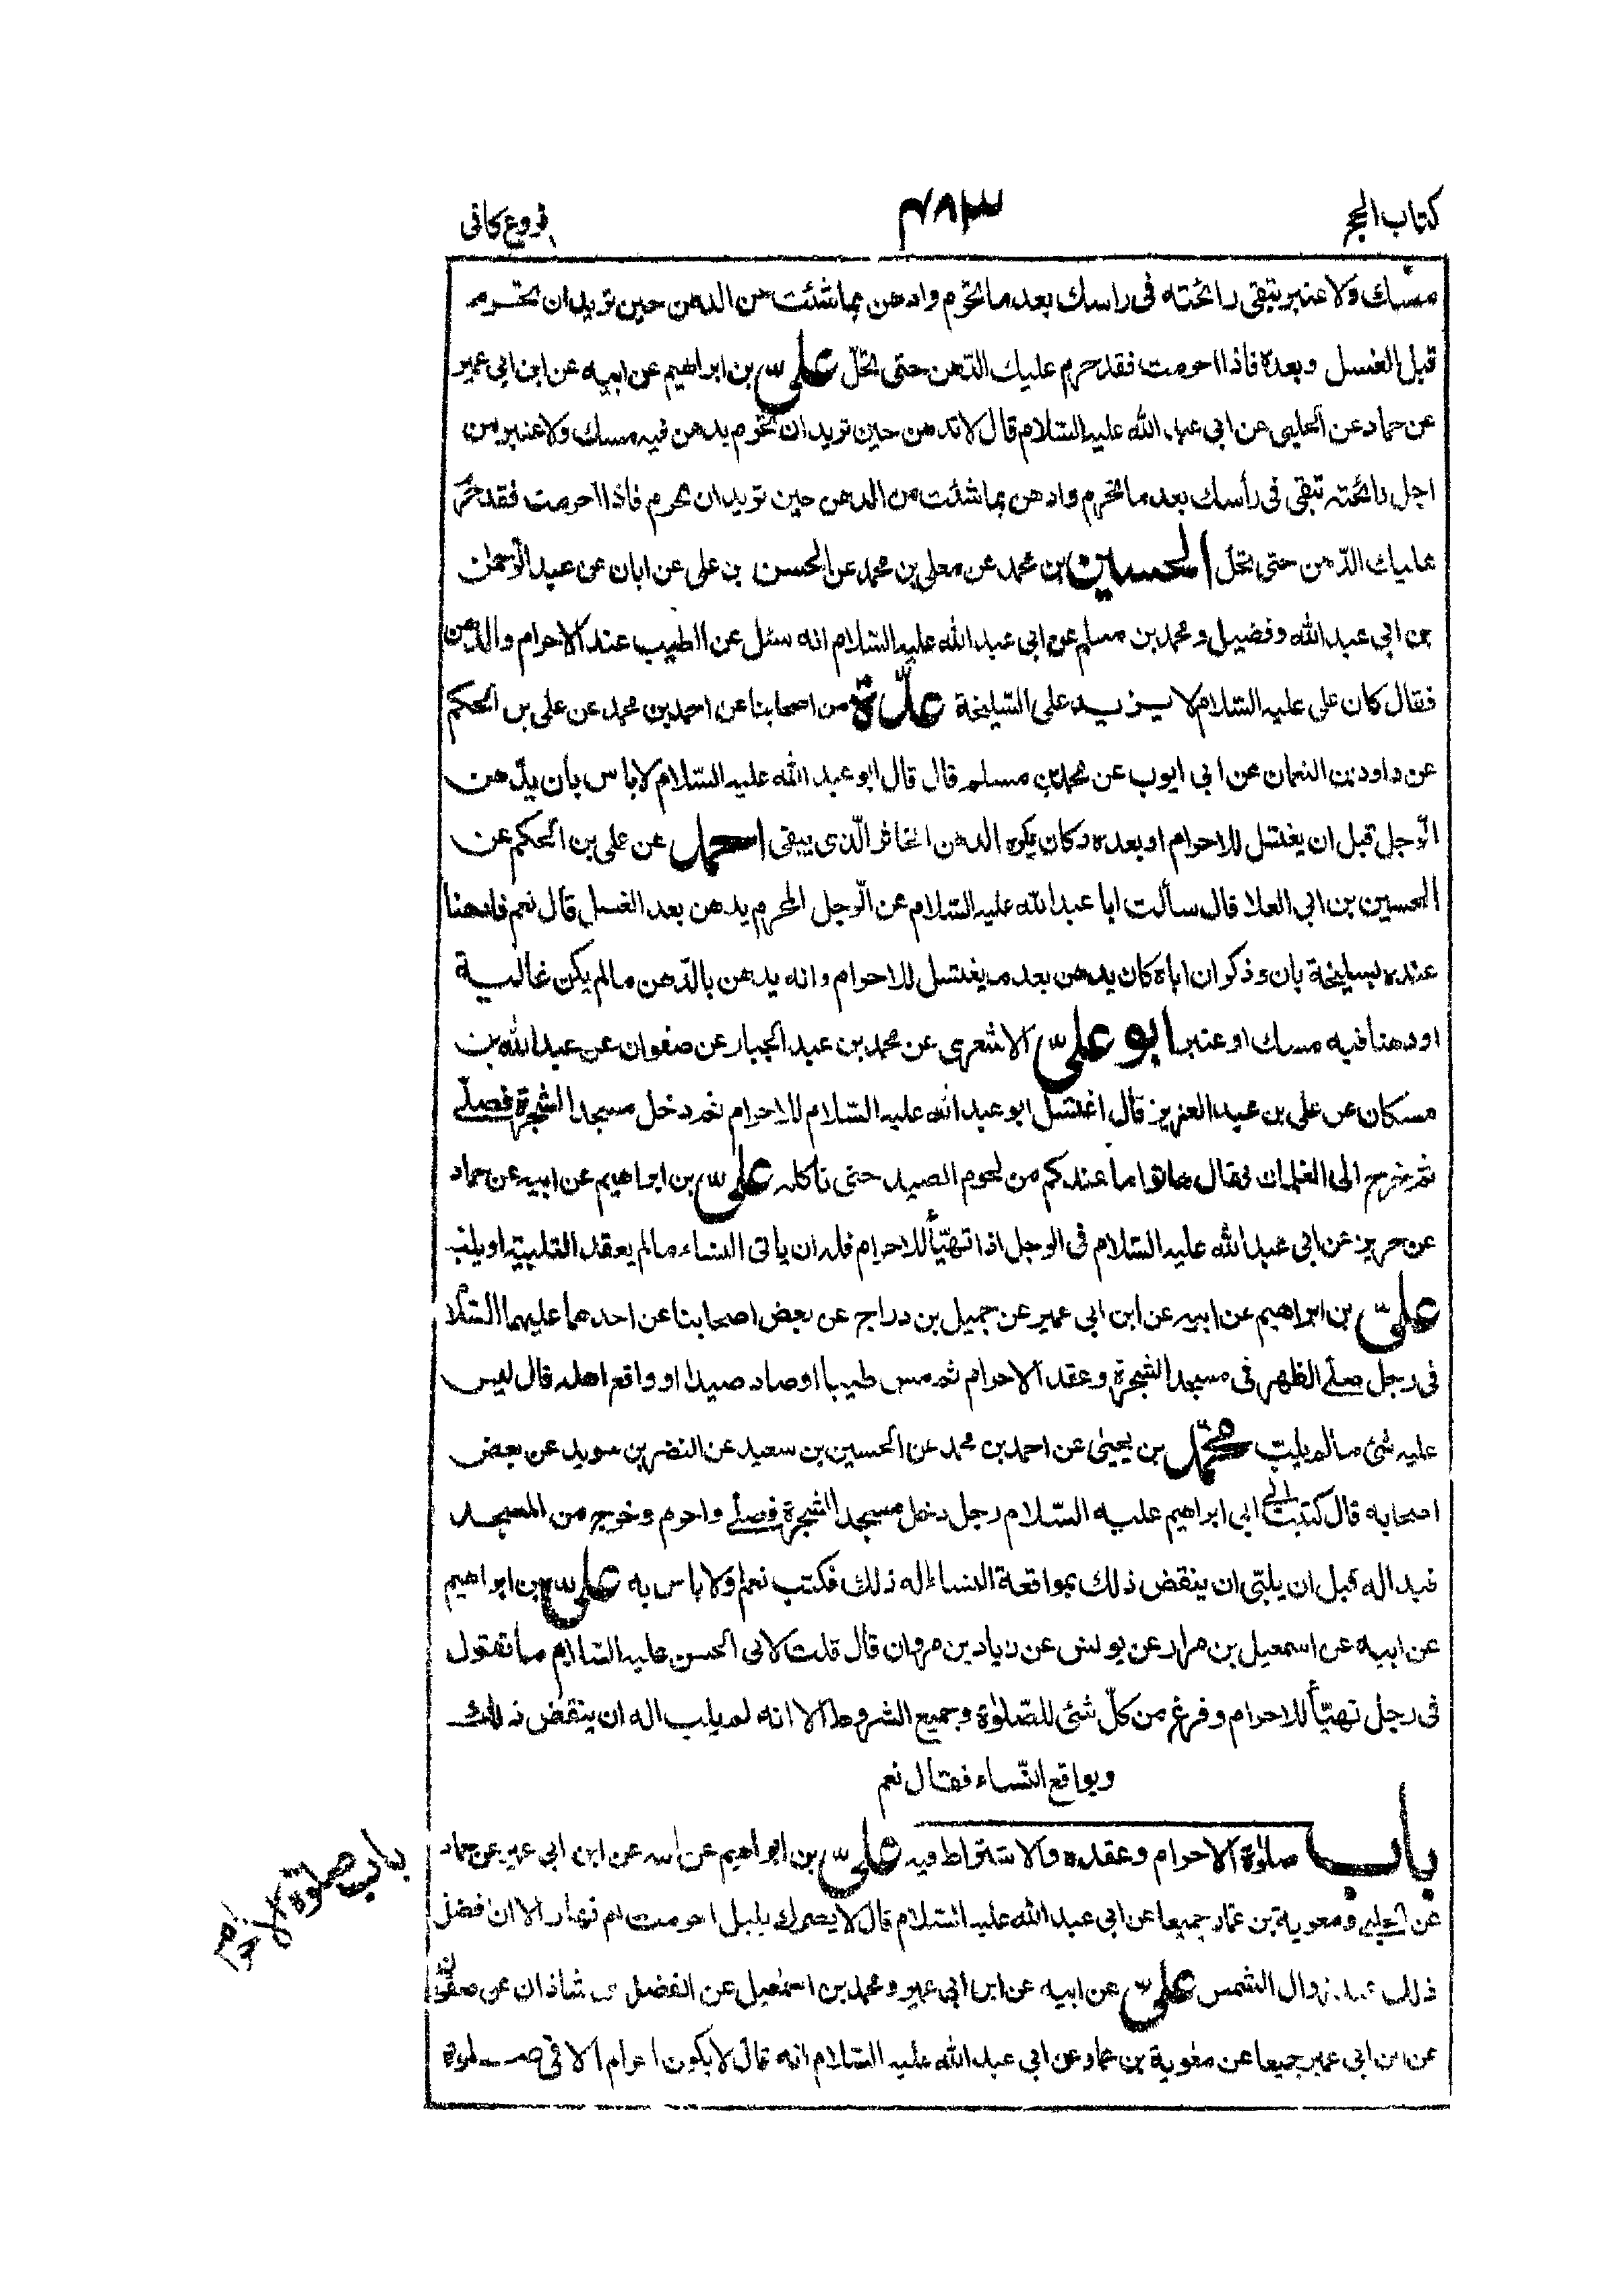 كتاب الحج
٤٨٣
فروع كافى
مسك ولا عنبر تبقى رائحته فى راسك بعد ما تحرم وادهن بما شئت من الدهن حين تريد ان تحرم
قبل الغسل وبعده فاذا احرمت فقد حرم عليك الدّهن حتى تحلّ علىّ بن ابراهيم عن ابيه عن ابن ابى عمير
عن حماد عن الحلبى عن ابى عبد الله عليه السّلام قال لا تدهن حين تريد ان تحرم بدهن فيه مسك ولا عنبر من
اجل رائحته تبقى فى رأسك بعد ما تحرم وادهن بما شئت من الدهن حين تريد ان تحرم فاذا احرمت فقد حرم
عليك الدّهن حتى تحلّ الحسين بن محمد عن معلى بن محمد عن الحسن بن على عن ابان عن عبد الرّحمان
بن ابى عبد الله وفضيل ومحمد بن مسلم عن ابى عبد الله عليه السّلام انه سئل عن الطيب عند الاحرام والدّهن
فقال كان على عليه السّلام لا يزيد على السّليخة عدّة من اصحابنا عن احمد بن محمد عن على بن الحكم
عن داود بن النعمان عن ابى ايوب عن محمد بن مسلم قال قال ابو عبد الله عليه السّلام لا باس بان يدّهن
الرّجل قبل ان يغتسل للاحرام او بعده وكان يكره الدهن الخاثر الّذى يبقى احمد عن على بن الحكم عن
الحسين بن ابى العلا قال سألت ابا عبد الله عليه السّلام عن الرّجل المحرم يدهن بعد الغسل قال نعم فادهنا
عنده بسليخة بان وذكر ان اباه كان يدهن بعد ما يغتسل للاحرام وانه يدهن بالدّهن مالم يكن غالية
او دهنا فيه مسك او عنبر ابو علىّ الاشعرى عن محمد بن عبد الجبار عن صفوان عن عبد الله بن
مسكان عن على بن عبد العزيز قال اغتسل ابو عبد الله عليه السّلام للاحرام ثم دخل مسجد الشجرة فصلّى
ثم خرج الى الغلمان فقال هاتوا ما عندكم من لحوم الصيد حتى ناكله علىّ بن ابراهيم عن ابيه عن حماد
عن حريز عن ابى عبد الله عليه السّلام فى الرجل اذا تهيّأ للاحرام فله ان ياتى النساء مالم يعقد التلبية او يلبّ
علىّ بن ابراهيم عن ابيه عن ابن ابى عمير عن جميل بن دراج عن بعض اصحابنا عن احدهما عليهما السّلام
فى رجل صلّى الظهر فى مسجد الشجرة وعقد الاحرام ثم مس طيبا او صاد صيدا او واقع اهله قال ليس
عليه شئ مالم يلبّ محمّد بن يحيىٰ عن احمد بن محمد عن الحسين بن سعيد عن النضر بن سويد عن بعض
اصحابه قال كتبت الى ابى ابراهيم عليه السّلام رجل دخل مسجد الشجرة فصلّى واحرم وخرج من المسجد
فبدا له قبل ان يلبّى ان ينقض ذلك بمواقعة النساء اله ذلك فكتب نعم او لا باس به علىّ بن ابراهيم
عن ابيه عن اسمعيل بن مرار عن يونس عن زياد بن مروان قال قلت لابى الحسن عليه السّلام ما تقول
فى رجل تهيّأ للاحرام وفرغ من كلّ شئ للصّلوٰة وجميع الشروط الا انه لم يلب اله ان ينقض ذلك
ويواقع النّساء فقال نعم
باب صلوٰة الاحرام وعقده والاشتراط فيه علىّ بن ابراهيم عن ابيه عن ابن ابى عمير عن حماد
عن الحلبى ومعوية بن عمار جميعا عن ابى عبد الله عليه السّلام قال لا يضرك بليل احرمت ام نهار الا ان افضل
ذلك عند زوال الشمس علىّ عن ابيه عن ابن ابى عمير ومحمد بن اسمعيل عن الفضل بن شاذان عن صفوان
عن ابن ابى عمير جميعا عن معوية بن عمار عن ابى عبد الله عليه السّلام انه قال لا يكون احرام الا فى صلوة
باب صلوة الاحرام